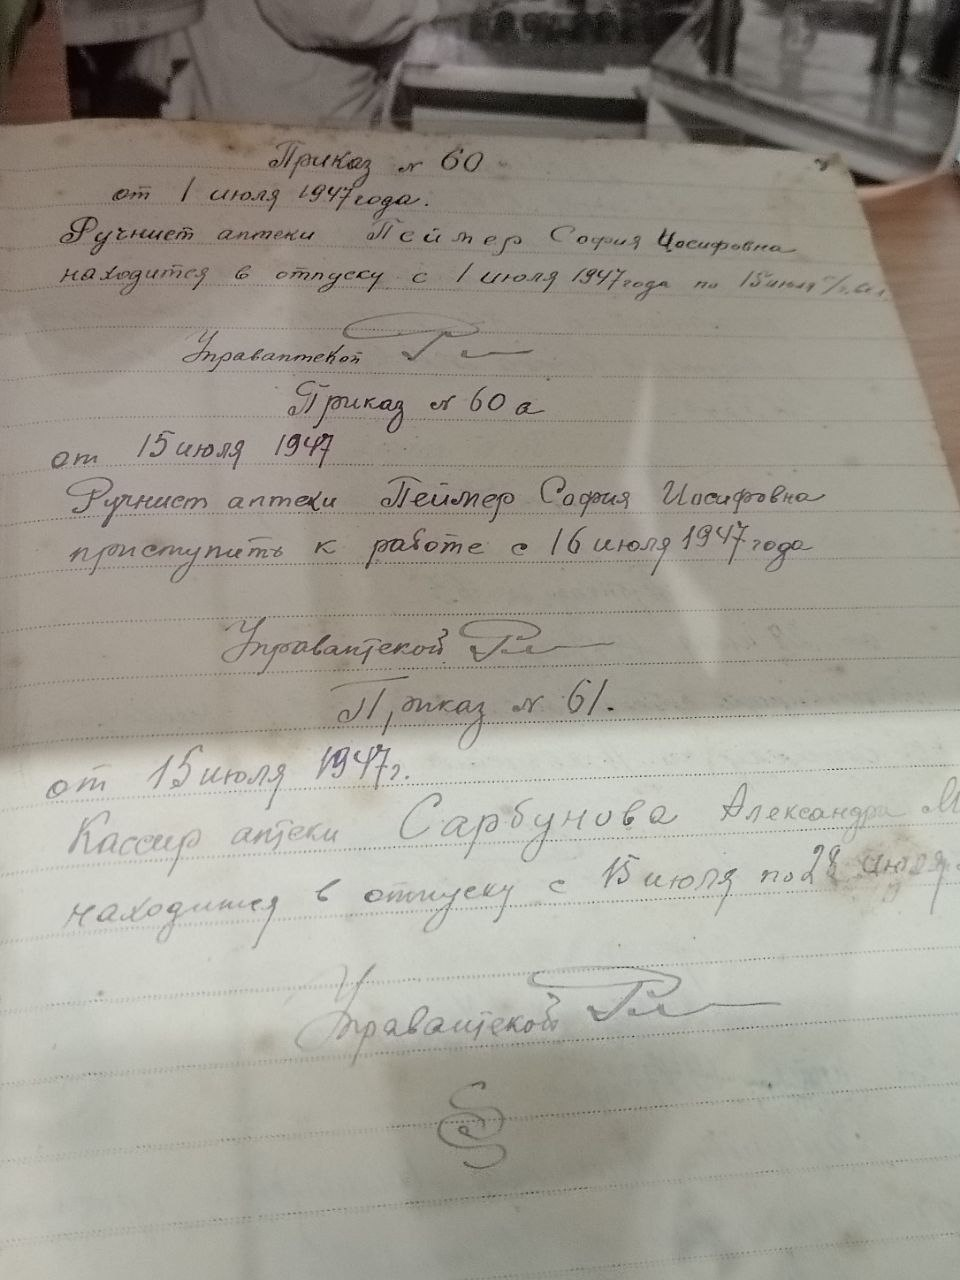 Приказ № 60
от 1 июля 1947 года.
Ручнист аптеки Пеймер София Иосифовна
находится в отпуску с 1 июля 1947 года по 15 июля
Управаптекой
Приказ № 60 а
от 15 июля 1947
Ручнист аптеки Пеймер София Иосифовна
приступить к работе с 16 июля 1947 года
Управаптекой
Приказ № 61.
от 15 июля 1947 г.
Кассир аптеки Сарбунова Александра М
находится в отпуску с 15 июля по 28 июля
Управаптекой